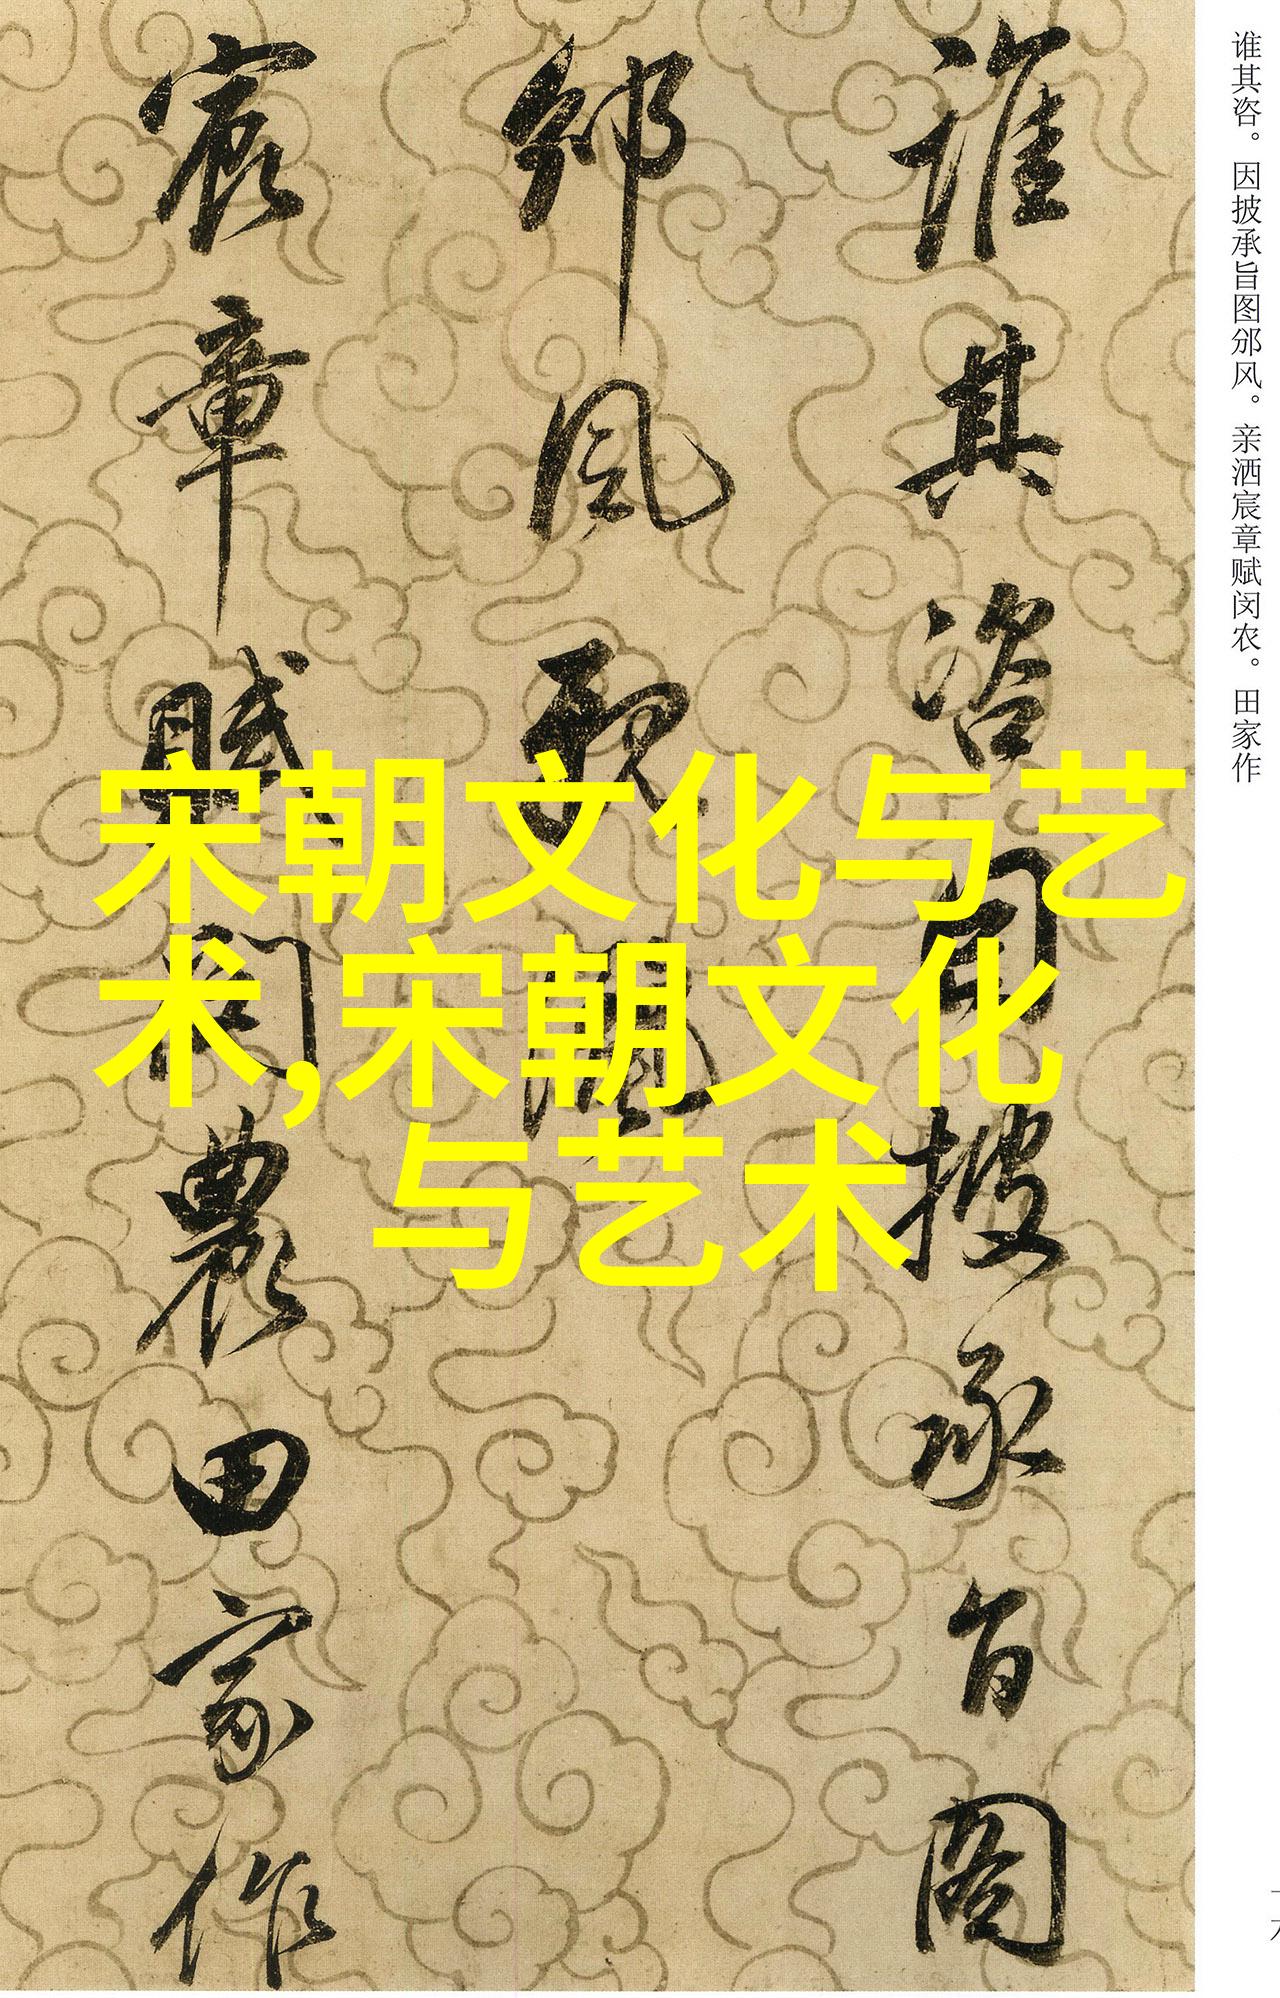 谁其咨。因披承旨图邠风。亲洒宸章赋闵农。田家作
誰其咨因披承旨圖
邠風親灑
宸章賦閔農田家作
宋朝文化与艺
术,宋朝文化
与艺术